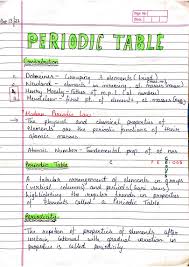 Page No.
Date
PERIODIC TABLE
Contribution
Dobereiner - Grouping 3 elements (triad)
Newland - elements in increasing at. masses
Henry Mosley - Father of m.p.l (at. number)
Mendeleev - first p.t. of elements at. masses
Modern Periodic Law
The physical and chemical properties of
elements are the periodic functions of their
atomic number
Atomic Number - Fundamental prop. of at.
Periodic Table
A tabular arrangement of elements in groups
(vertical columns) and periods (horizontal rows)
highlighting the regular trends in properties
of elements called a Periodic Table
Periodicity
The repetition of properties of elements after
certain interval with gradual variation in
properties is called